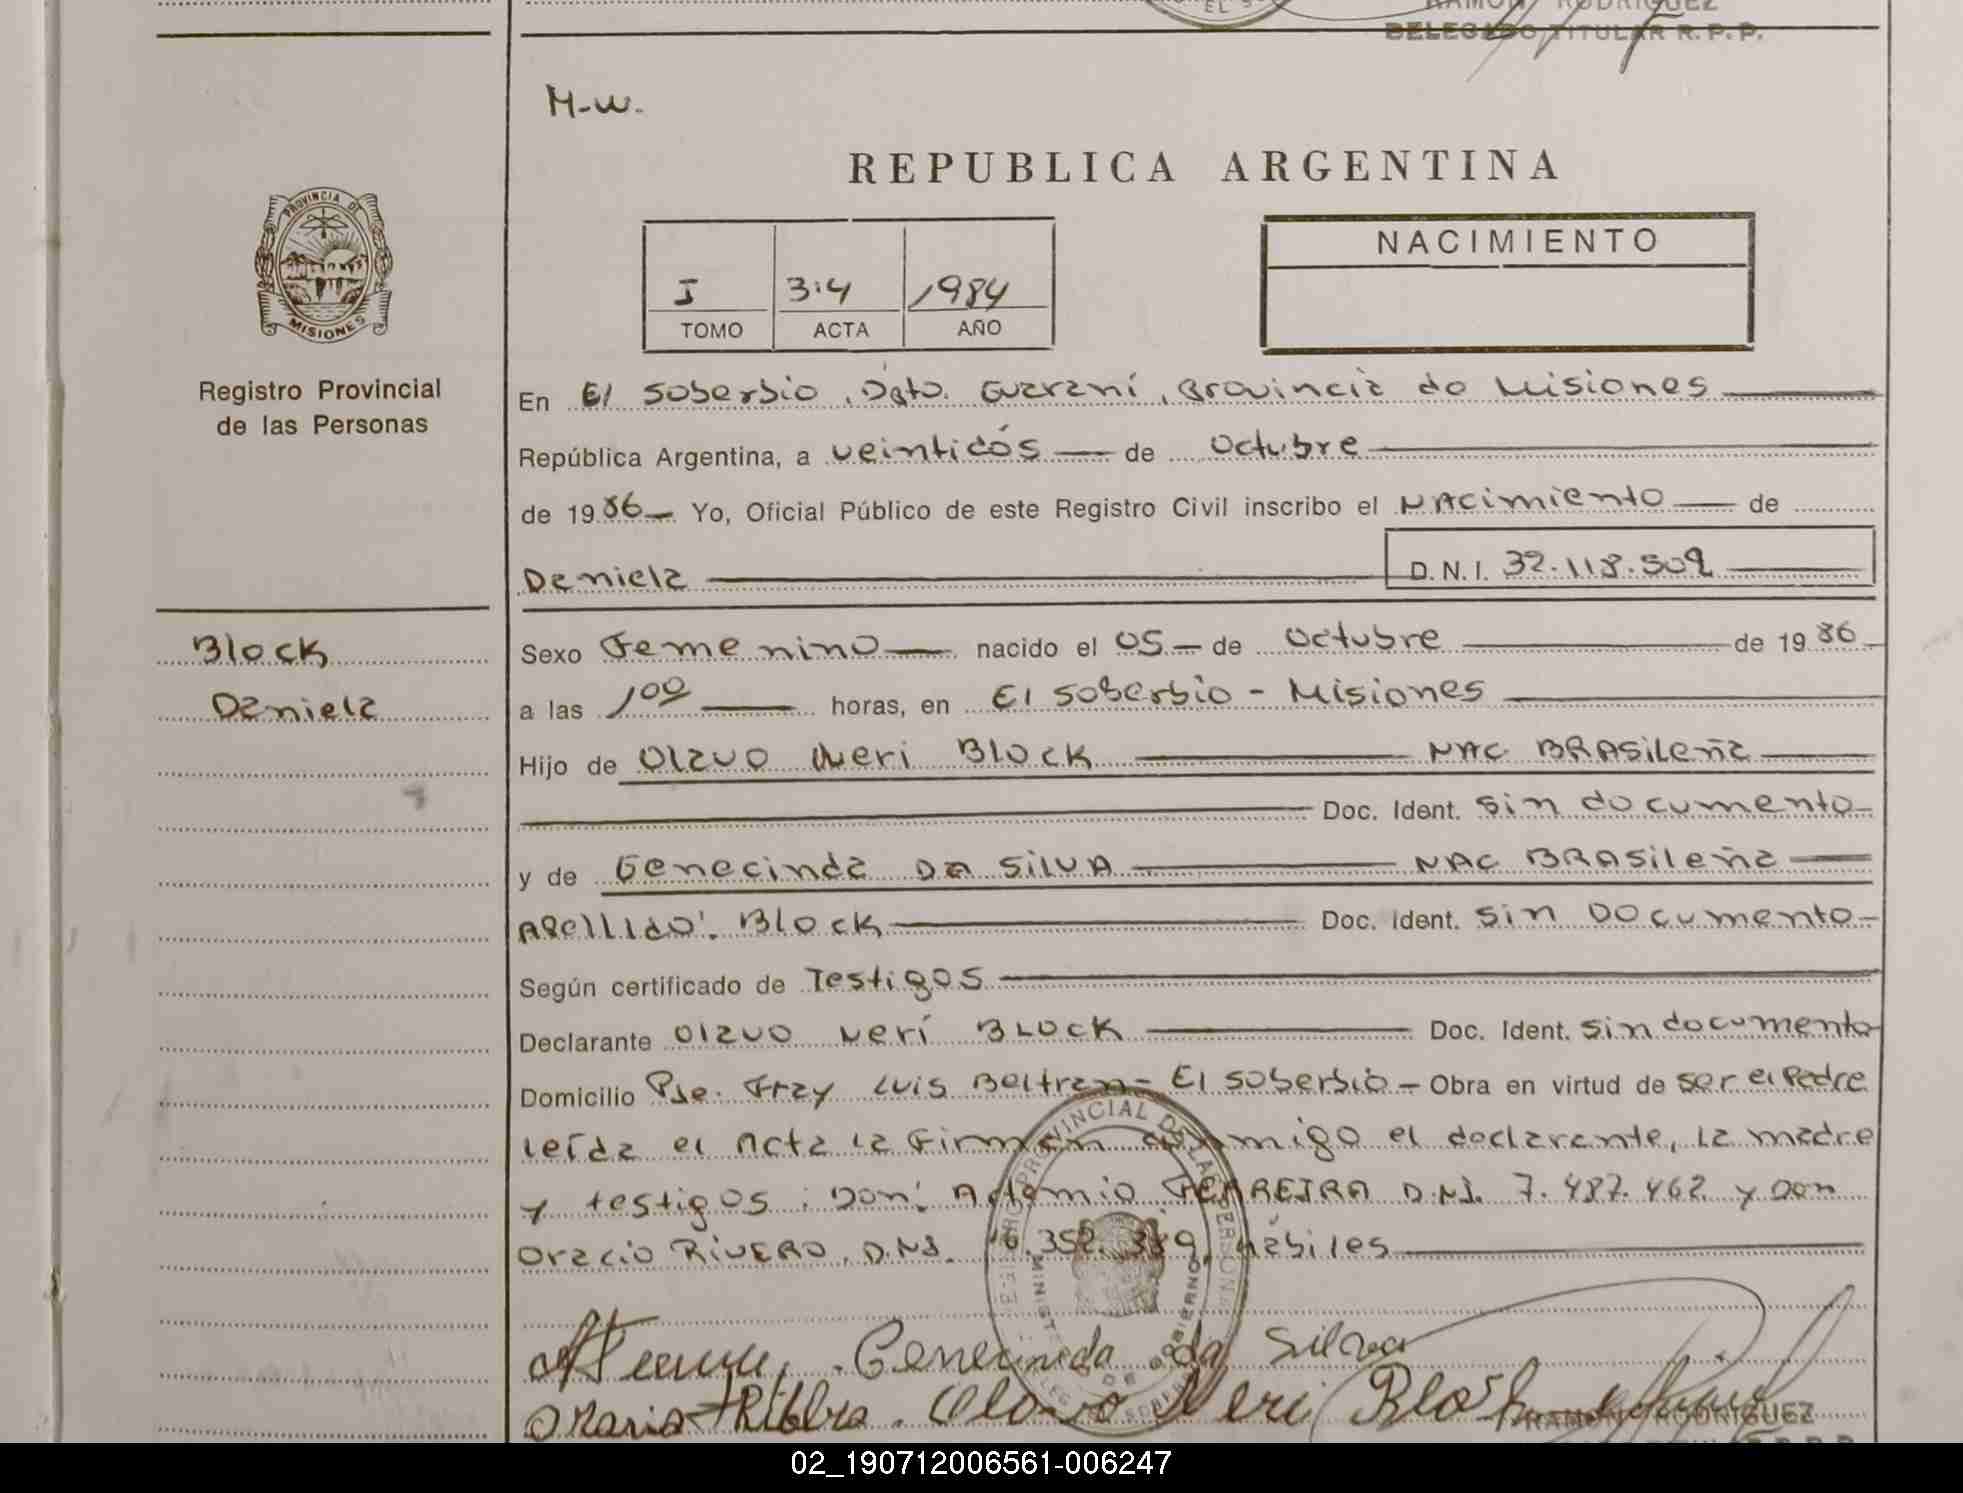 RAMON RODRIGUEZ
DELEGADO TITULAR R.P.P.
M-W.
REPUBLICA ARGENTINA
PROVINCIA DE
MISIONES
Registro Provincial
de las Personas
I 3:4 1984
TOMO ACTA AÑO
NACIMIENTO
En El Soberbio, Dpto. Guaraní, Provincia de Misiones
República Argentina, a veintidós de octubre
de 1986 Yo, Oficial Público de este Registro Civil inscribo el NAcimiento de
Daniela D.N.I. 32.118.509
Block
Daniela
Sexo Femenino nacido el 05 de octubre de 1986
a las 1 00 horas, en El Soberbio - Misiones
Hijo de Olavo Neri Block NAC BRASileña
Doc. Ident. sin documento
y de Genecinda DA SILVA NAC BRASileña
Apellido: Block Doc. Ident. sin Documento
Según certificado de Testigos
Declarante Olavo Neri Block Doc. Ident. sin documento
Domicilio Pje. Fray Luis Beltran - El Soberbio - Obra en virtud de ser el Padre
leída el Acta la firman conmigo el declarante, la madre
y testigos: Don: Artemio FERREIRA D.N.I. 7.487.462 y Don
Oracio RIVERO, D.N.I. 16.352.339, hábiles
Genecinda da Silva
Olavo Neri Block
RAMON RODRIGUEZ
02_190712006561-006247